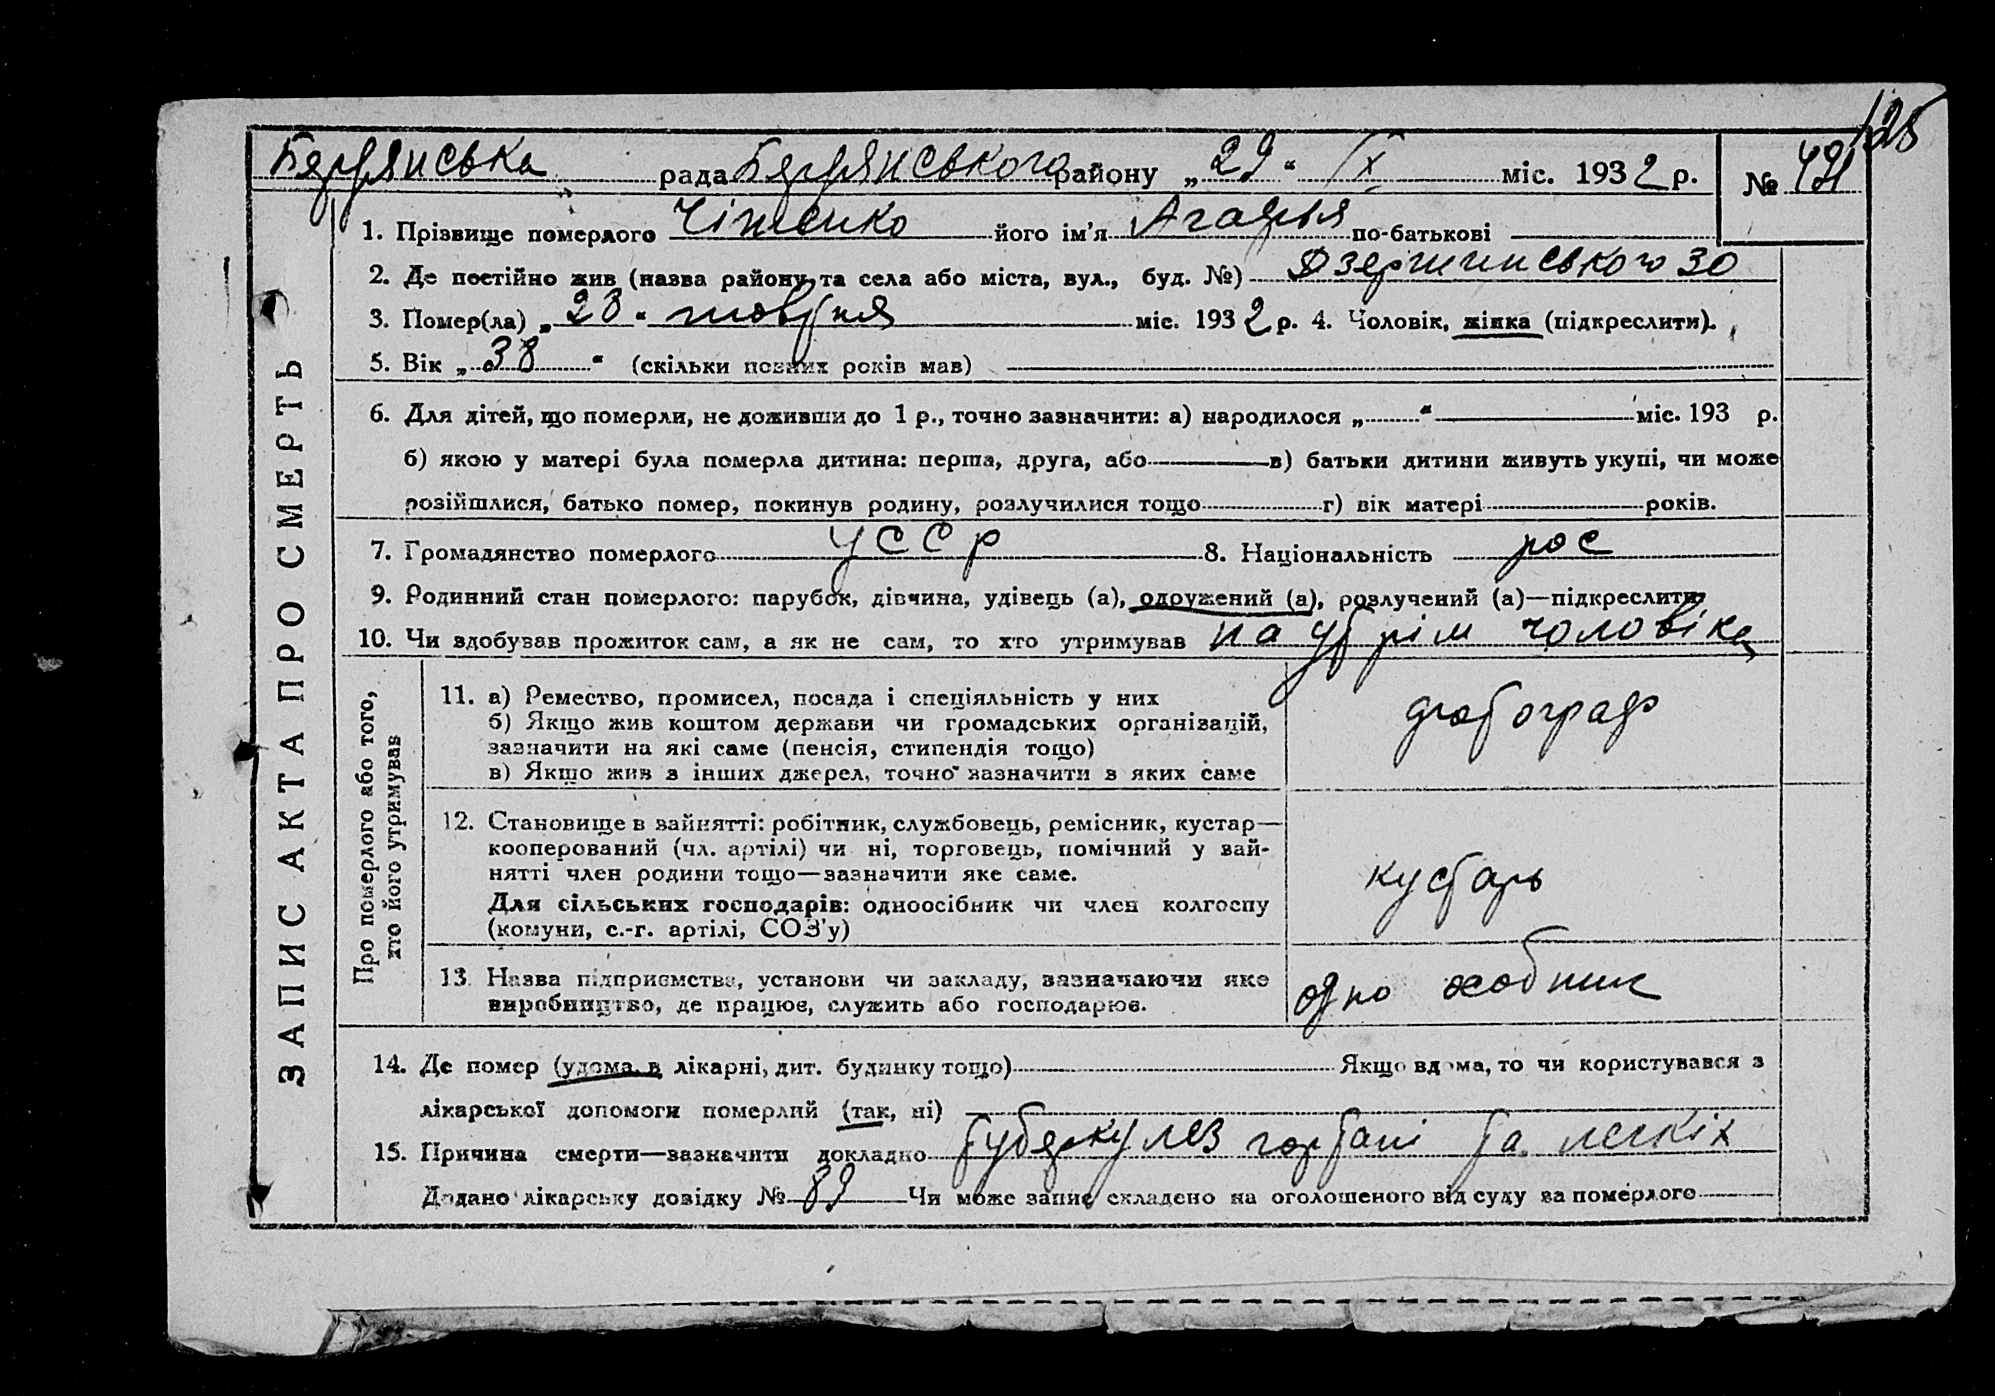 125
Бердянська рада Бердянського району „29“ IX міс. 1932 р. № 421
1. Прізвище померлого Чіпенко його ім'я Агафья по-батькові
2. Де постійно жив (назва району та села або міста, вул., буд. №) Дзержинського 30
3. Помер(ла) „28“ жовтня міс. 1932 р. 4. Чоловік, жінка (підкреслити).
5. Вік „38“ (скільки повних років мав)
6. Для дітей, що померли, не доживши до 1 р., точно зазначити: а) народилося „ “ міс. 193 р.
б) якою у матері була померла дитина: перша, друга, або в) батьки дитини живуть укупі, чи може
розійшлися, батько помер, покинув родину, розлучилися тощо г) вік матері років.
7. Громадянство померлого УССР 8. Національність рос
9. Родинний стан померлого: парубок, дівчина, удівець (а), одружений (а), розлучений (а)—підкреслити
10. Чи здобував прожиток сам, а як не сам, то хто утримував на утрім чоловіка
ЗАПИС АКТА ПРО СМЕРТЬ
Про померлого або того,
хто його утримував
11. а) Ремество, промисел, посада і спеціяльність у них
б) Якщо жив коштом держави чи громадських організацій,
зазначити на які саме (пенсія, стипендія тощо)
в) Якщо жив з інших джерел, точно зазначити з яких саме
фотограф
12. Становище в зайнятті: робітник, службовець, ремісник, кустар—
кооперований (чл. артілі) чи ні, торговець, помічний у зай-
нятті член родини тощо—зазначити яке саме.
Для сільських господарів: одноосібник чи член колгоспу
(комуни, с.-г. артілі, СОЗ'у)
кустарь
13. Назва підприємства, установи чи закладу, зазначаючи яке
виробництво, де працює, служить або господарює.
одно
14. Де помер (удома, в лікарні, дит. будинку тощо) Якщо вдома, то чи користувався з
лікарської допомоги померлий (так, ні)
15. Причина смерти—зазначити докладно туберкулез гортані та легкіх
Додано лікарську довідку № 89 Чи може запис складено на оголошеного від суду за померлого